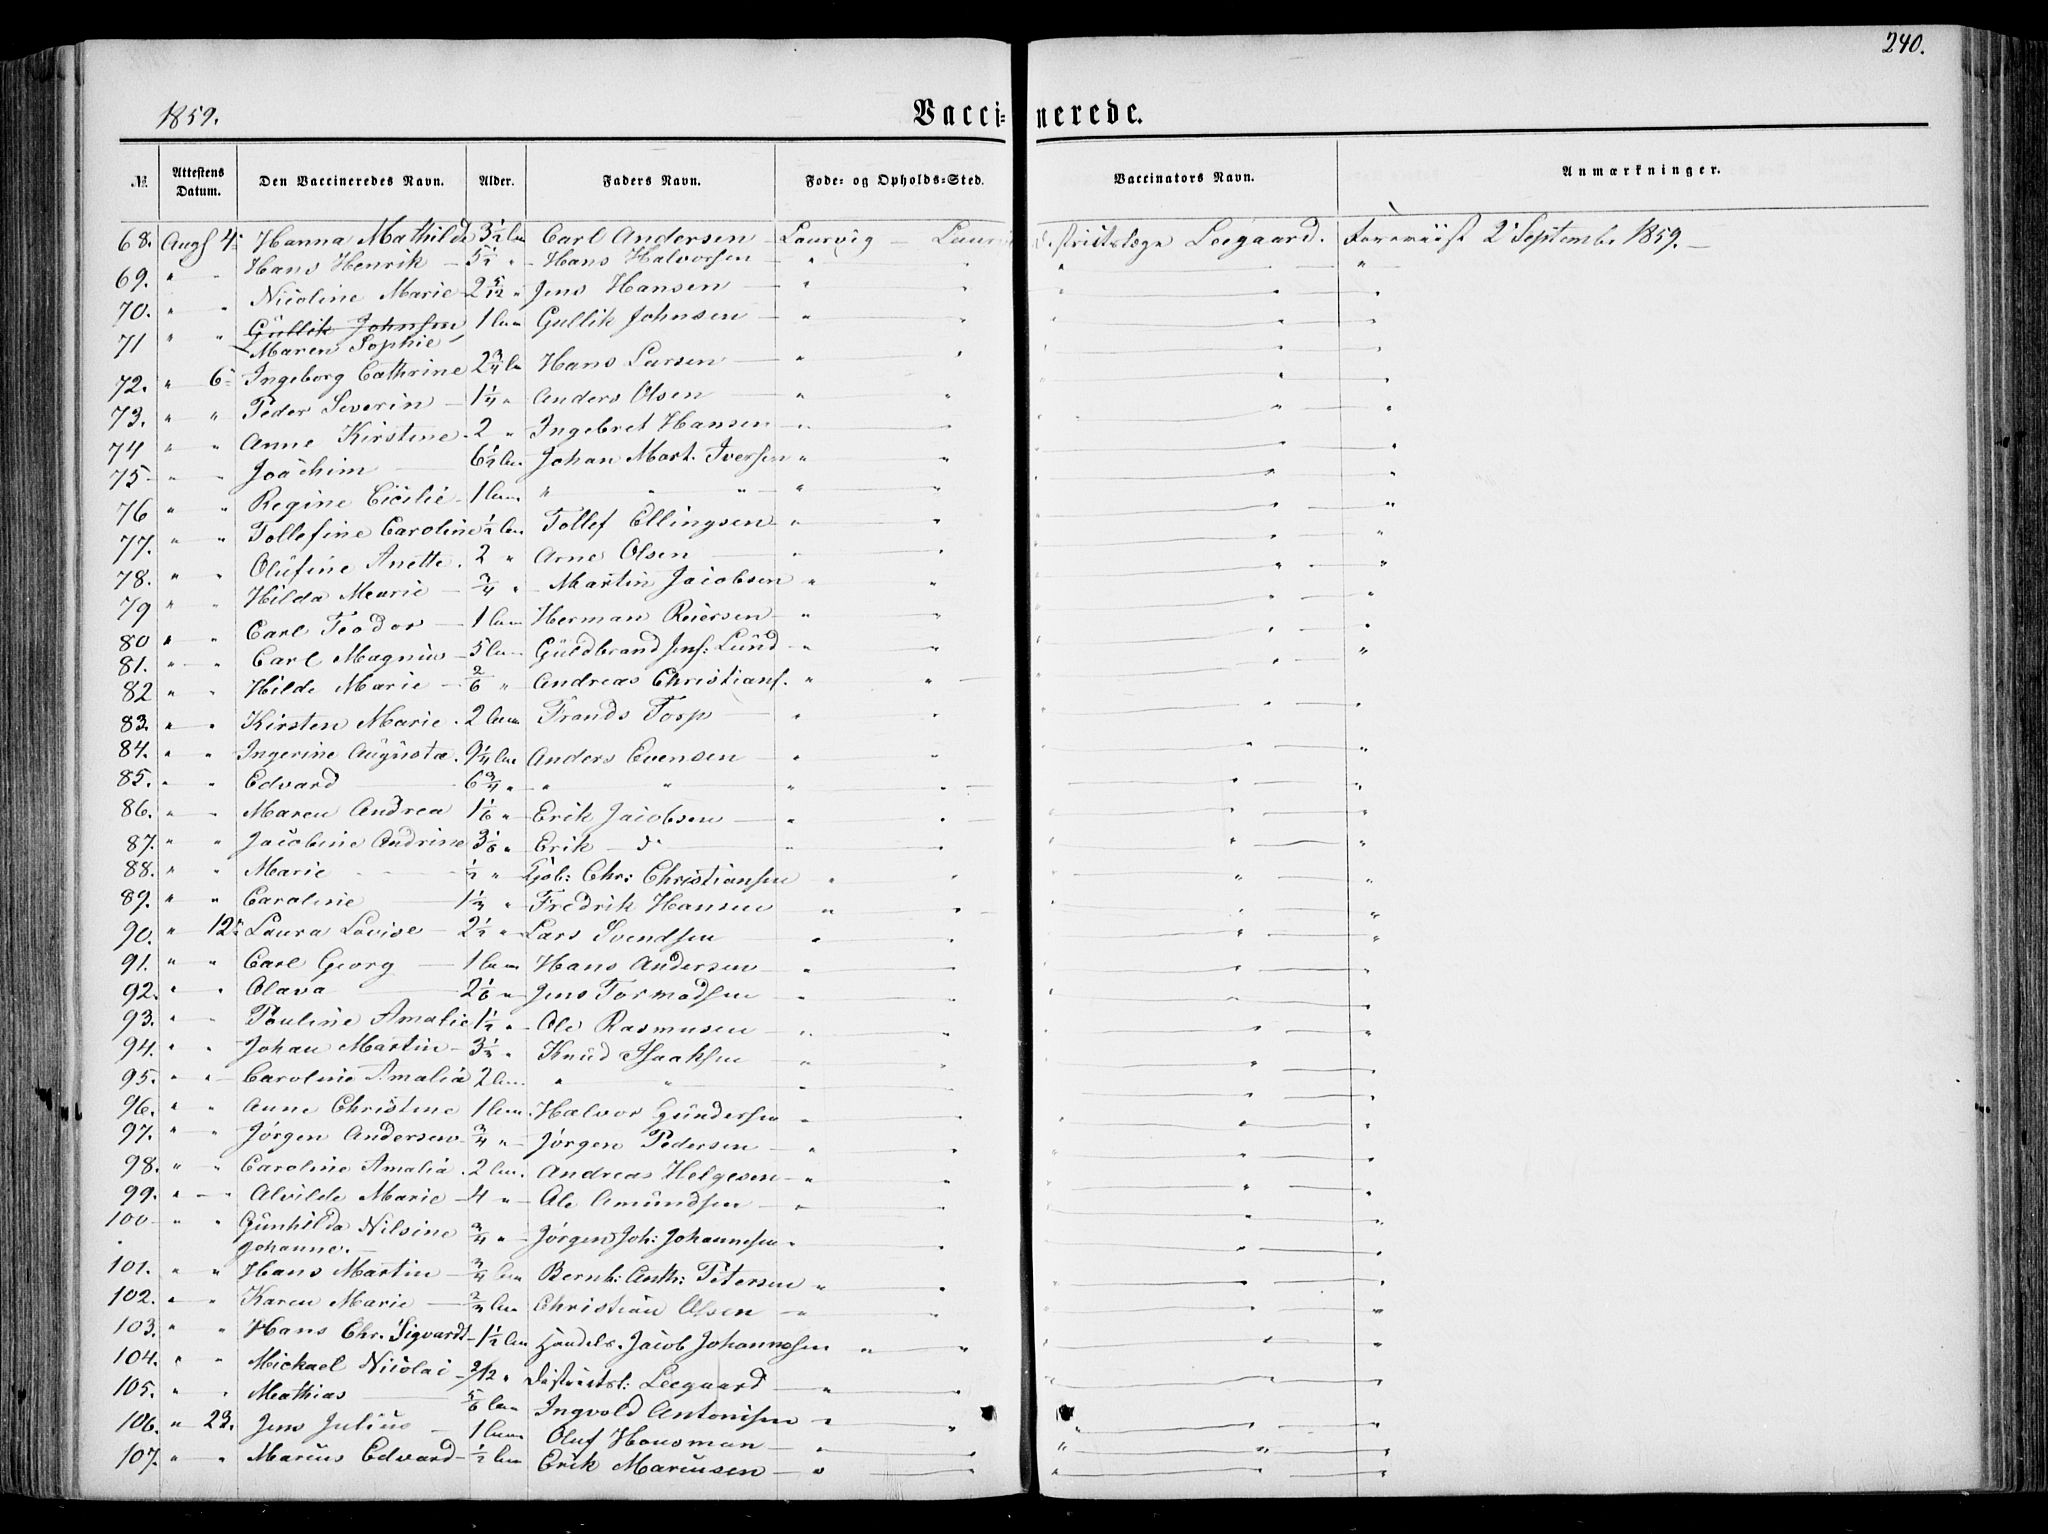 240.
1859. Vaccinerede.
№ Attestens Datum. Den Vaccineredes Navn. Alder. Faders Navn. Føde- og Opholds-Sted. Vaccinators Navn. Anmærkninger.
68. Aug 4. Hanna Mathilde 3½ Carl Andersen Laurvig Leegaard. Foreviist 2 Septembr 1859.
69. " Hans Henrik 5½ " Hans Halvorsen " " " "
70. " " Nicoline Marie 2 5/12 " Jens Hansen " " " "
71 " " Gullik Johnsen 1 Gullik Johnsen " " " "
Maren Sophie
72. " 6 Ingeborg Cathrine 2¾ Hans Larsen " " " "
73. " " Peder Severin 1¼ " Anders Olsen " " " "
74 " " Anne Kirstine 2 " Ingebret Hansen " " " "
75 " " Joachim 6½ Johan Mart. Iversen " " " "
76 " " Regine Cicilie 1 " " " " " " "
77. " " Tollefine Caroline ½ Tollef Ellingsen " " " "
78. " " Olufine Anette 2 " Arne Olsen " " " "
79 " " Hilda Marie ¾ " Martin Jacobsen " " " "
80 " " Carl Teodor 1 Herman Reiersen " " " "
81. " " Carl Magnus 5 Guldbrand Jens: Lund " " " "
82 " " Hilde Marie 2/6 " Andreas Christians. " " " "
83. " " Kirsten Marie 2 Frands " " " "
84. " " Ingerine Augusta 9¼ Anders Evensen " " " "
85. " " Edvard 6¾ " " " " " " "
86. " " Maren Andrea 1 1/6 " Erik Jacobsen " " " "
87. " " Jacobine Andrine 3 1/6 " Erik do " " " "
88. " " Marie ½ " Chr: Christiansen " " " "
89. " " Caroline 1⅓ " Fredrik Hansen " " " "
90. " 12 Laura Lovise 2½ " Lars Svendsen " " " "
91. " " Carl Georg 1 Hans Andersen " " " "
92. " " Olava 2 1/6 " Jens Tormodsen " " " "
93. " " Pauline Amalie 1½ " Ole Rasmusen " " " "
94. " " Johan Martin 3½ " Knud Isaaksen " " " "
95. " " Caroline Amalia 2 " " " " " "
96. " " Anne Christine 1 Halvor Gundersen " " " "
97. " " Jørgen Andersen ¾ " Jørgen Pedersen " " " "
98. " " Caroline Amalia 2 Andreas Helgesen " " " "
99. " " Alvilde Marie 4 " Ole Amundsen " " " "
100 " " Gunhilda Nilsine ¾ " Jørgen Joh: Johannesen " " " "
Johanne.
101. " " Hans Martin ¾ Bernh: Anth: Petersen " " " "
102. " " Karen Marie Christian Olsen " " " "
103. " " Hans Chr. Sigvardt 1½ Handels. Jacob Johannesen " " " "
104. " " Mickael Nicolai 2/12 " Districtsl: Leegaard " " " "
105. " " Mathias 5/6 Ingvold Antonisen " " " "
106. " 23. Jens Julius 1 Oluf Housman " " " "
107. " " Marius Edvard ½ Erik Mariusen " " " "